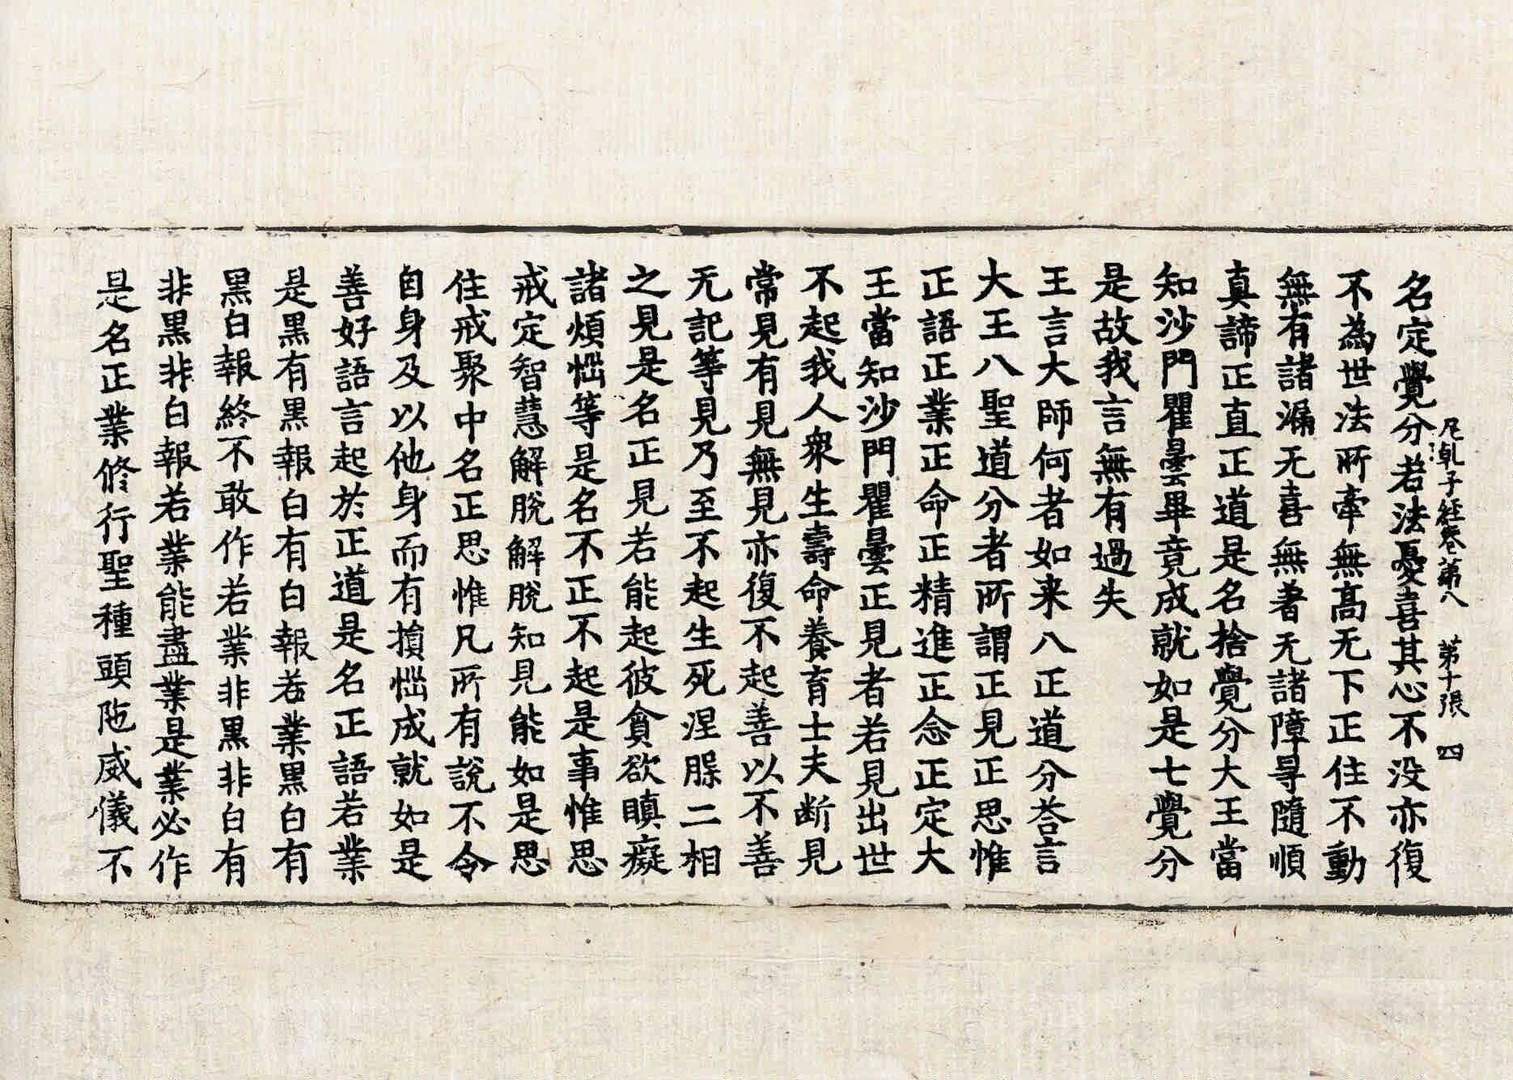 尼乹子経卷第八　第十張　四
名定覺分者法憂喜其心不没亦復
不為世法所牽無髙无下正住不動
無有諸漏无喜無著无諸障㝵隨順
真諦正直正道是名捨覺分大王當
知沙門瞿曇畢竟成就如是七覺分
是故我言無有過失
王言大師何者如来八正道分荅言
大王八聖道分者所謂正見正思惟
正語正業正命正精進正念正定大
王當知沙門瞿曇正見者若見出世
不起我人衆生壽命養育士夫断見
常見有見無見亦復不起善以不善
无記等見乃至不起生死涅槃二相
之見是名正見若能起彼貪欲瞋癡
諸煩惱等是名不正不起是事惟思
戒定智慧解脫解脫知見能如是思
住戒聚中名正思惟凡所有說不令
自身及以他身而有損惱成就如是
善好語言起於正道是名正語若業
是黒有黒報白有白報若業黒白有
黒白報終不敢作若業非黒非白有
非黒非白報若業能盡業是業必作
是名正業修行聖種頭陁威儀不